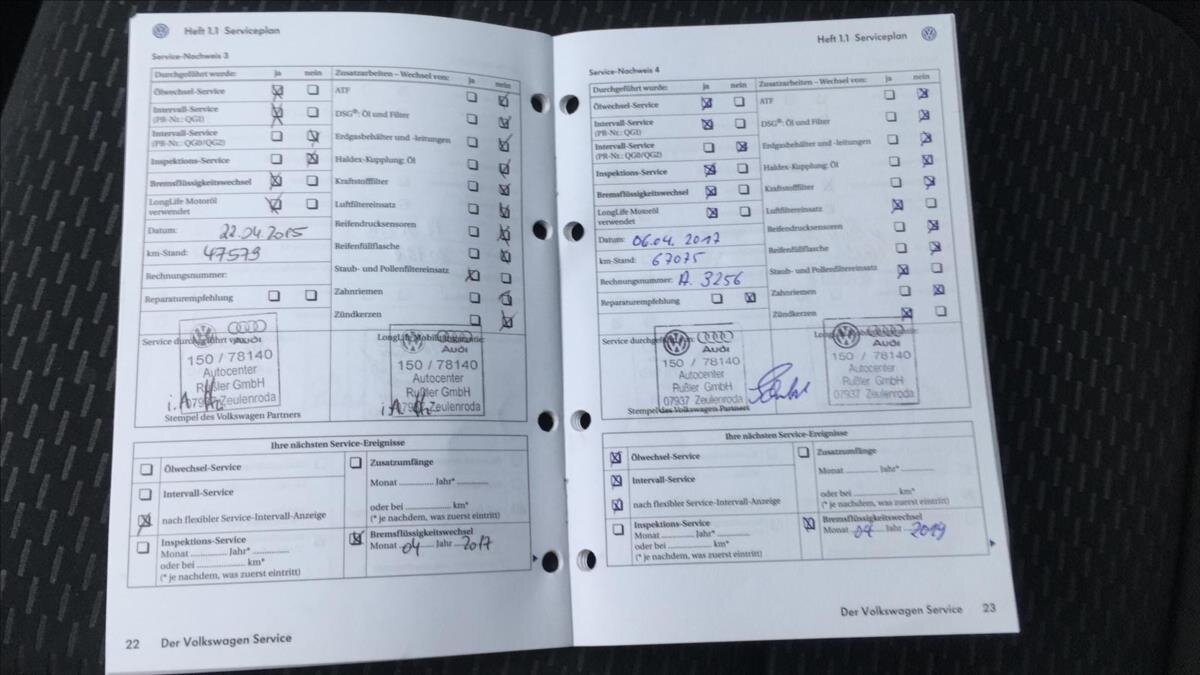 Heft 1.1 Serviceplan
Service-Nachweis 3
Durchgeführt wurde: ja nein
Ölwechsel-Service
Intervall-Service
(PR-Nr.: QG1)
Intervall-Service
(PR-Nr.: QG0/QG2)
Inspektions-Service
Bremsflüssigkeitswechsel
LongLife Motoröl
verwendet
Datum: 22.04.2015
km-Stand: 47579
Rechnungsnummer:
Reparaturempfehlung
Zusatzarbeiten – Wechsel von: ja nein
ATF
DSG®: Öl und Filter
Erdgasbehälter und -leitungen
Haldex-Kupplung: Öl
Kraftstofffilter
Luftfiltereinsatz
Reifendrucksensoren
Reifenfüllflasche
Staub- und Pollenfiltereinsatz
Zahnriemen
Zündkerzen
Service durchgeführt von:
Audi
150 / 78140
Autocenter
Rußler GmbH
07937 Zeulenroda
i.A
Stempel des Volkswagen Partners
LongLife Mobilitätsgarantie:
Audi
150 / 78140
Autocenter
Rußler GmbH
07937 Zeulenroda
i.A
Ihre nächsten Service-Ereignisse
Ölwechsel-Service
Intervall-Service
nach flexibler Service-Intervall-Anzeige
Inspektions-Service
Monat ............... Jahr* ...............
oder bei ............... km*
(* je nachdem, was zuerst eintritt)
Zusatzumfänge
Monat ............... Jahr* ...............
oder bei ............... km*
(* je nachdem, was zuerst eintritt)
Bremsflüssigkeitswechsel
Monat 04 Jahr 2017
22 Der Volkswagen Service
Heft 1.1 Serviceplan
Service-Nachweis 4
Durchgeführt wurde: ja nein
Ölwechsel-Service
Intervall-Service
(PR-Nr.: QG1)
Intervall-Service
(PR-Nr.: QG0/QG2)
Inspektions-Service
Bremsflüssigkeitswechsel
LongLife Motoröl
verwendet
Datum: 06.04.2017
km-Stand: 67075
Rechnungsnummer: A. 3256
Reparaturempfehlung
Zusatzarbeiten – Wechsel von: ja nein
ATF
DSG®: Öl und Filter
Erdgasbehälter und -leitungen
Haldex-Kupplung: Öl
Kraftstofffilter
Luftfiltereinsatz
Reifendrucksensoren
Reifenfüllflasche
Staub- und Pollenfiltereinsatz
Zahnriemen
Zündkerzen
Service durchgeführt von:
Audi
150 / 78140
Autocenter
Rußler GmbH
07937 Zeulenroda
Stempel des Volkswagen Partners
Audi
150 / 78140
Autocenter
Rußler GmbH
07937 Zeulenroda
Ihre nächsten Service-Ereignisse
Ölwechsel-Service
Intervall-Service
nach flexibler Service-Intervall-Anzeige
Inspektions-Service
Monat ............... Jahr* ...............
oder bei ............... km*
(* je nachdem, was zuerst eintritt)
Zusatzumfänge
Monat ............... Jahr* ...............
oder bei ............... km*
(* je nachdem, was zuerst eintritt)
Bremsflüssigkeitswechsel
Monat 04 Jahr 2019
Der Volkswagen Service 23